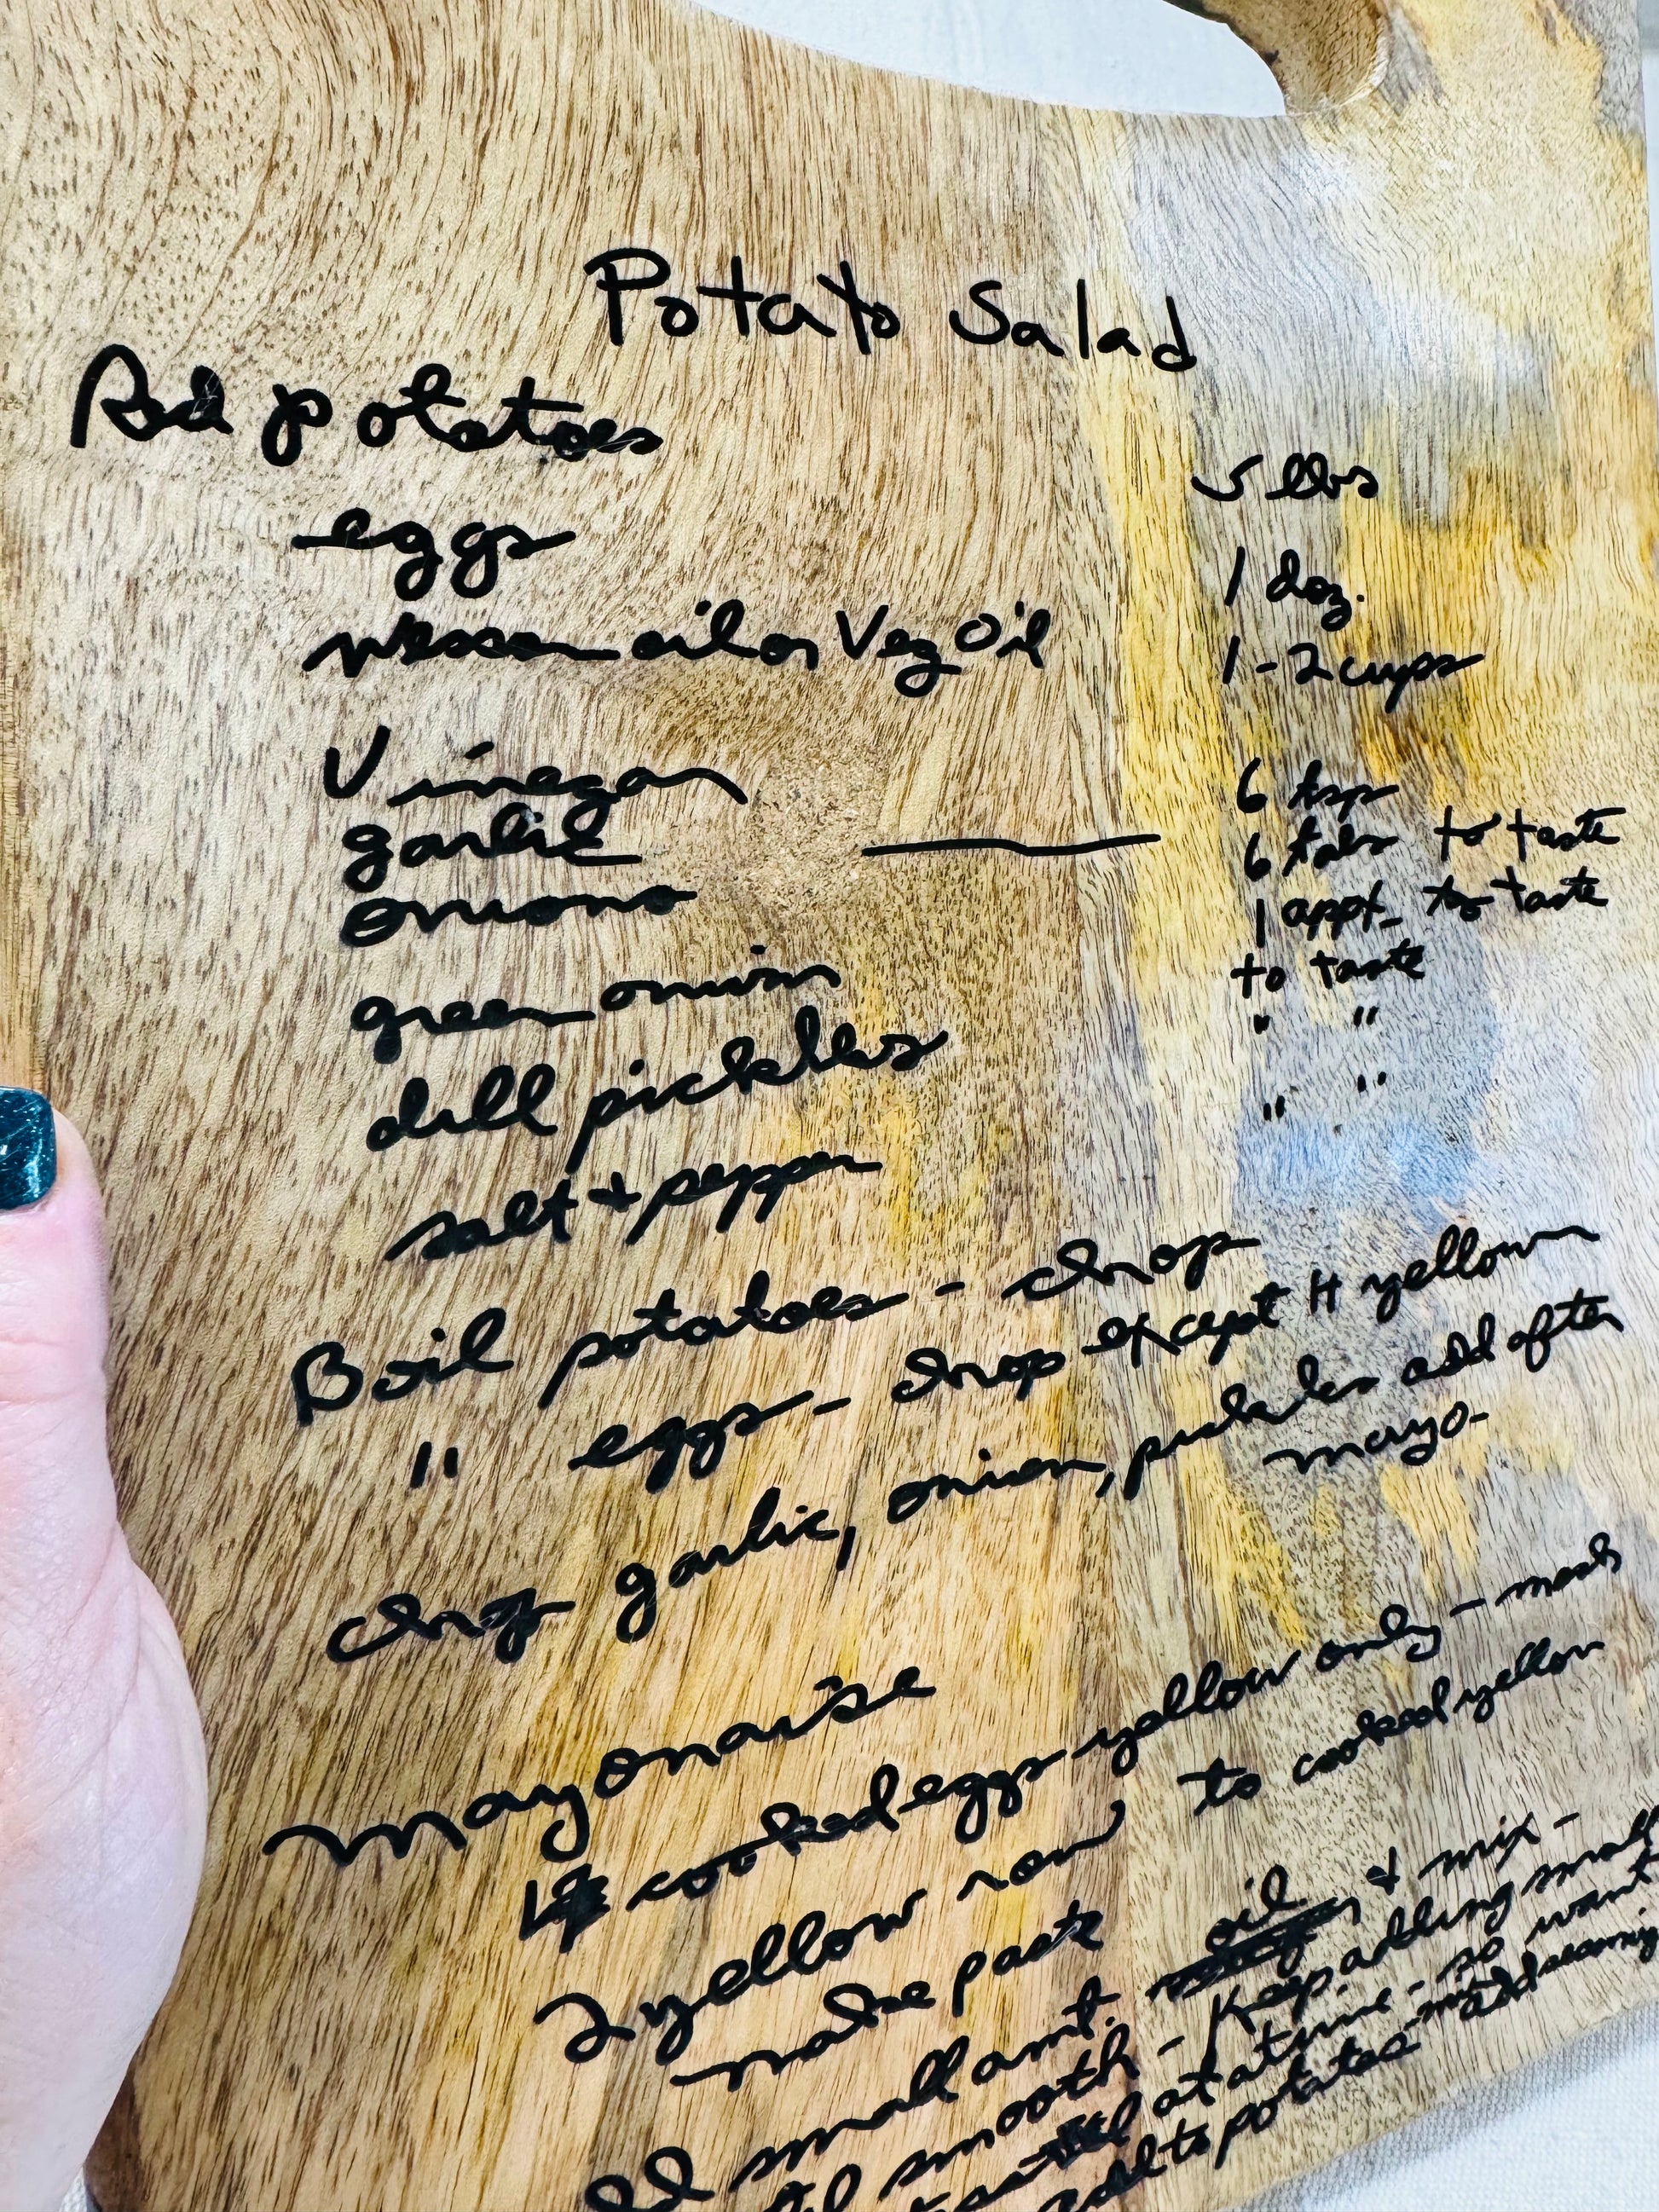 Potato Salad
Red potatoes 5 lbs
eggs 1 doz.
wesson oil or Veg Oil 1-2 cups
Vinegar 6 tsp
garlic — 6 tabs to taste
onions 1 appx. to taste
green onion to taste
dill pickles " "
salt + pepper " "
Boil potatoes - chop
" eggs - chop except 4 yellow
chop garlic, onion, pickles add after
mayo-
Mayonaise
4 cooked eggs yellow only - mash
2 yellow raw to cooked yellow
make paste
small amt. oil & mix -
smooth - Keep adding small
at a time - so want
add to potatoes - add seasoning